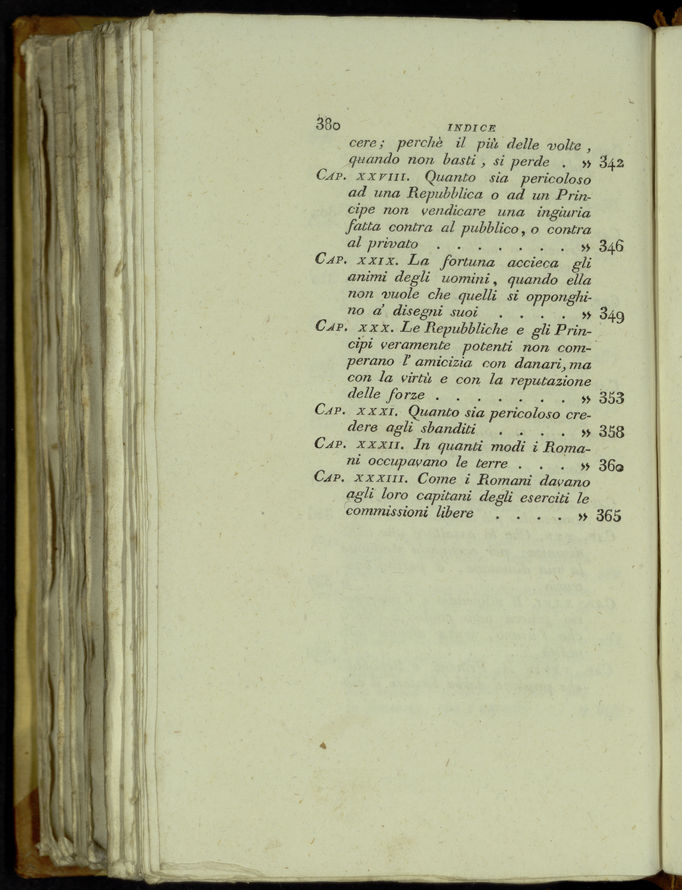 380 INDICE
cere; perchè il più delle volte,
quando non basti, si perde . » 342
CAP. XXVIII. Quanto sia pericoloso
ad una Repubblica o ad un Prin-
cipe non vendicare una ingiuria
fatta contra al pubblico, o contra
al privato . . . . . . . » 346
CAP. XXIX. La fortuna accieca gli
animi degli uomini, quando ella
non vuole che quelli si opponghi-
no a' disegni suoi . . . . » 349
CAP. XXX. Le Repubbliche e gli Prin-
cipi veramente potenti non com-
perano l' amicizia con danari, ma
con la virtù e con la reputazione
delle forze . . . . . . . » 353
CAP. XXXI. Quanto sia pericoloso cre-
dere agli sbanditi . . . . » 358
CAP. XXXII. In quanti modi i Roma-
ni occupavano le terre . . . » 360
CAP. XXXIII. Come i Romani davano
agli loro capitani degli eserciti le
commissioni libere . . . . » 365